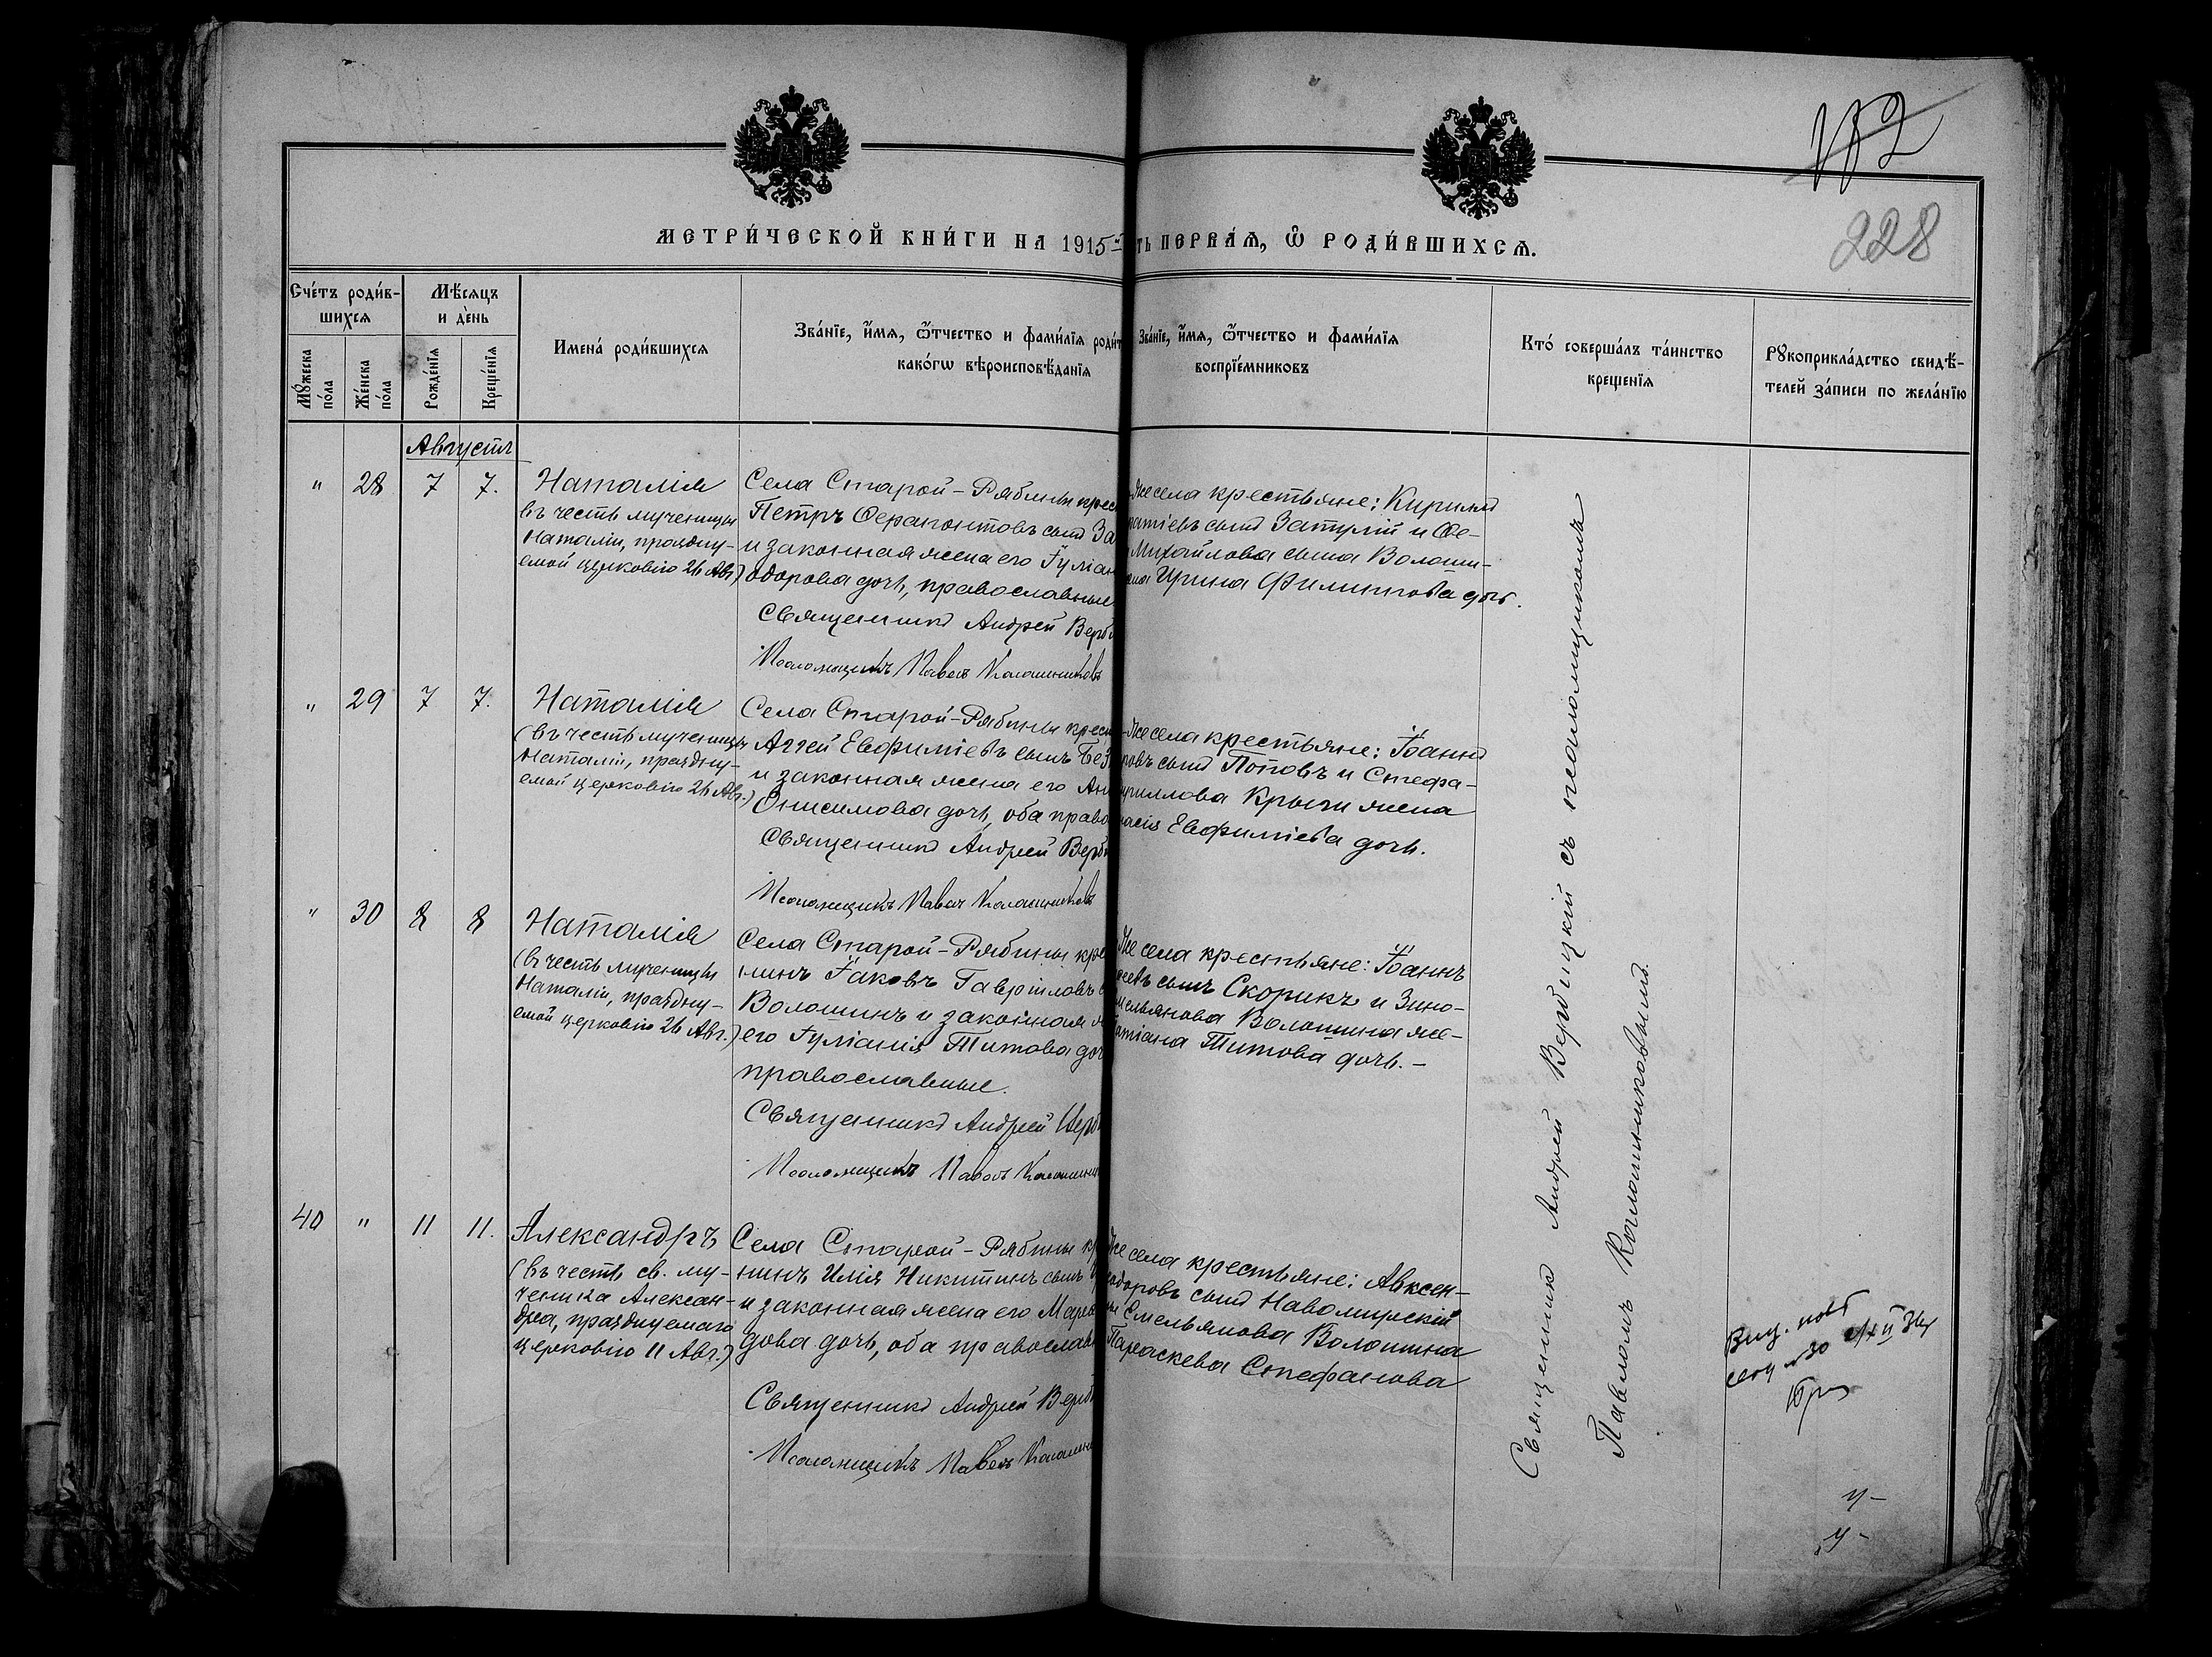 182
228
МЕТРИ́ЧЕСКОЙ КНИ́ГИ НА 1915
ТЬ ПЕРВА́Я, Ѿ РОДИ́ВШИХСѦ.
Сче́тъ роди́в-
шихсѧ
Мѣ́сѧцъ
и де́нь
Му́жеска по́ла
Же́нска по́ла
Рожде́нїѧ
Креще́нїѧ
Имена́ роди́вшихсѧ
Зва́нїе, и́мѧ, ѻ́тчество и фами́лїѧ роди́т
како́гѡ вѣроисповѣ́данїѧ
Зва́нїе, и́мѧ, ѻ́тчество и фами́лїѧ
воспрїе́мниковъ
Кто́ соверша́лъ та́инство
креще́нїѧ
Рукоприкла́дство свидѣ́-
телей за́писи по жела́нїю
Августъ
" 28 7 7.
Наталія
въ честь мученицы
Наталіи, праздну-
емой церковію 26 Авг.)
Села Старой-Рябины крес
Петръ Ферапонтовъ сынъ За
и законная жена его Іуліан
одорова дочь, православные
Священникъ Андрей Верби
Псаломщикъ Павелъ Калашниковъ
же села крестьяне: Кириллъ
патіевъ сынъ Затулій и Ѳе-
Михайлова сына Волоши-
на Ирина Филиппова дочь.
" 29 7 7.
Наталія
(въ честь мученицы
Наталіи, праздну-
емой церковію 26 Авг.)
Села Старой-Рябины крес
Аггей Евфиміевъ сынъ Без
и законная жена его Ан
Онисимова дочь, оба право
Священникъ Андрей Верби
Псаломщикъ Павелъ Калашниковъ
же села крестьяне: Іоаннъ
ровъ сынъ Поповъ и Стефа-
ириллова Крыги жена
асія Евфиміева дочь.
" 30 8 8
Наталія
(въ честь мученицы
Наталіи, праздну-
емой церковію 26 Авг.)
Села Старой-Рябины кре
нинъ Іаковъ Гавріиловъ с
Волошинъ и законная ж
его Іуліанія Титова доч
православные.
Священникъ Андрей Верб
Псаломщикъ Павелъ Калашни
же села крестьяне: Іоаннъ
сѣевъ сынъ Скорикъ и Зино-
мельянова Волошина же-
атіана Титова дочь.-
40 " 11 11.
Александръ
(въ честь св. му-
ченика Алексан-
дра, празднуемаго
церковію 11 Авг.)
Села Старой-Рябины кр
нинъ Илія Никитинъ сынъ
и законная жена его Мар
дова дочь, оба православ
Священникъ Андрей Верб
Псаломщикъ Павелъ Калашн
же села крестьяне: Авксен-
одоровъ сынъ Наволирскій
Емельянова Волошина
Параскева Стефанова
Священникъ Андрей Вербицкій съ псаломщикомъ
Павломъ Калашниковымъ.